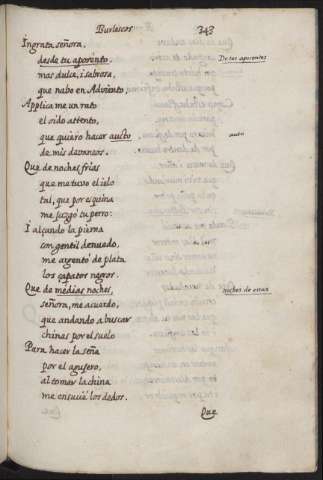 Burlescos
343
Ingrata señora,
desde tu aposento,
De tus aposentos
mas dulce, i sabrosa,
que nabo en Adviento
Applica me un rato
el oido attento,
que quiero hacer auto
auto
de mis devaneos.
Que de noches frias
que me tuvo el ielo
tal, que por esquina
me juzgó tu perro:
I alçando la pierna
con gentil denuedo,
me argentó de plata
los zapatos negros.
Que de medias noches,
noches de estas
señora, me acuerdo,
que andando a buscar
chinas por el suelo
Para hacer la seña
por el agugero,
al tomar la china
me ensucié los dedos.
Que